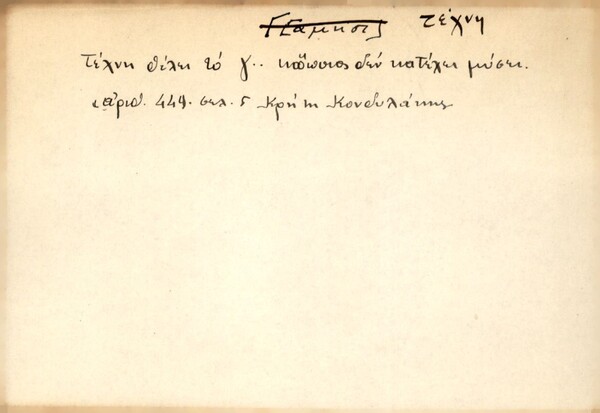 Γάμησις τέχνη
Τέχνη θέλει τό γ.. κι ὅποιος δέν κατέχει μύσει.
ἀριθ. 449. σελ. 5 Κρήτη Κονδυλάκης